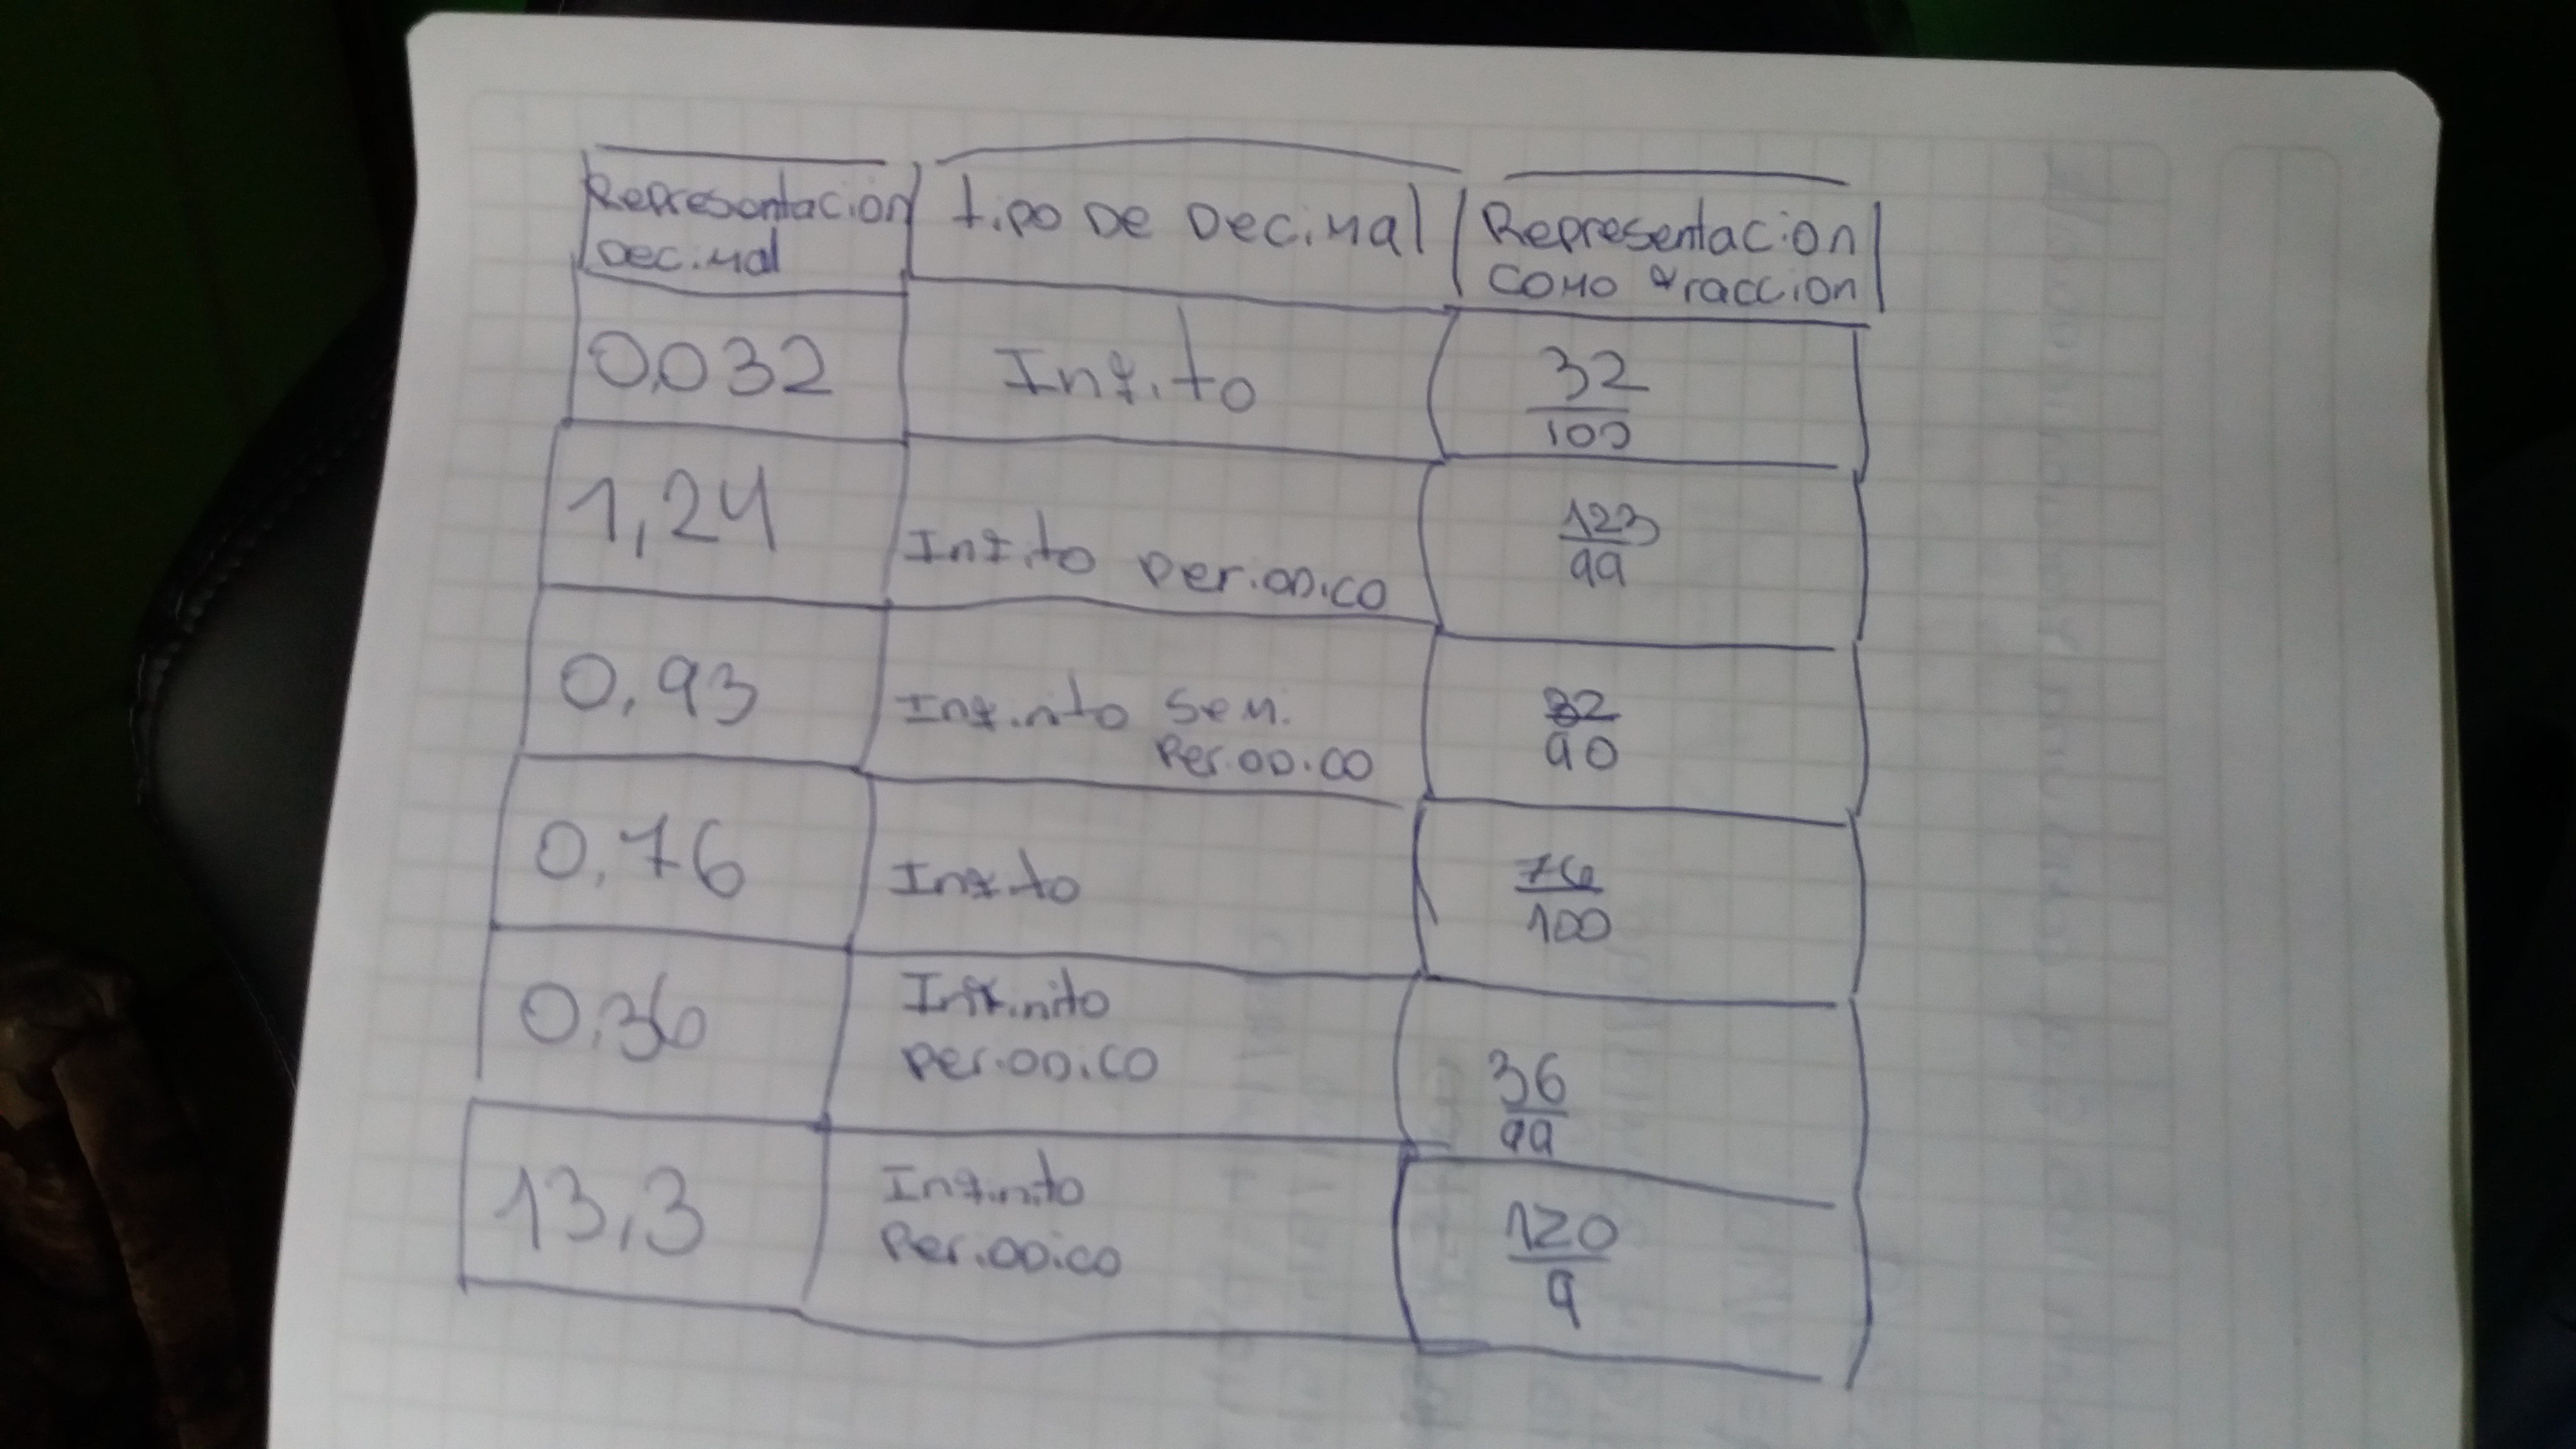 Representacion tipo De Decimal Representacion
Decimal como fraccion
0,032 Infito 32/100
1,24 Infito periodico 123/99
0,93 Infinito Semi
Periodico 32/90
0,76 Infito 76/100
0,36 Infinito
periodico 36/99
13,3 Infinito
Periodico 120/9